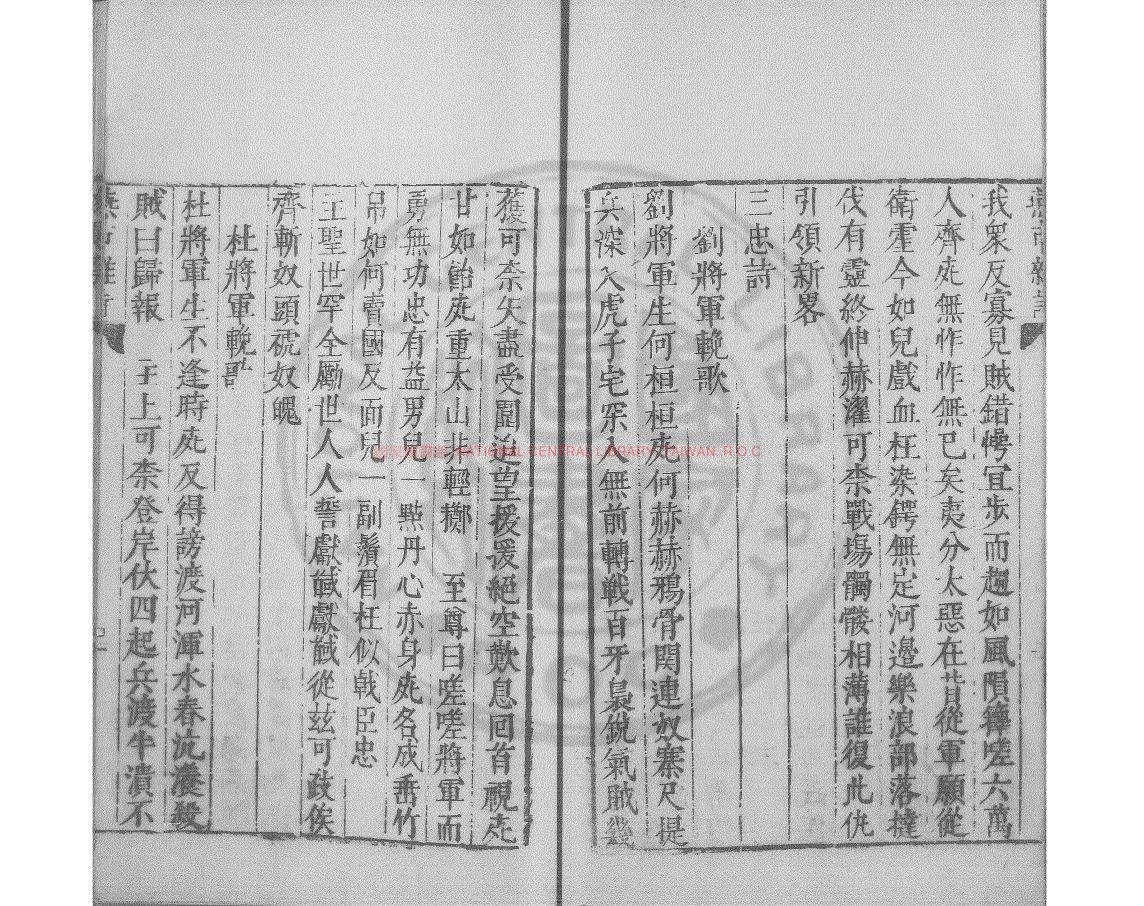 我衆反寡見賊錯愕宜步而趨如風隕籜嗟六萬
人齊死無怍怍無已矣夷分太惡在昔從軍願從
衛霍今如兒戲血枉染鍔無定河邊樂浪部落撻
伐有靈終伸赫濯可柰戰塲髑髏相薄誰復此仇
引領新畧
三忠詩
劉將軍輓歌
劉將軍生何桓桓死何赫赫鴉骨関連奴寨尺提
兵深入虎子宅罙入無前轉戦百矛裊銳氣賊幾
獲可柰矢盡受圍迫望援援絕空歎息回首視死
甘如飴死重太山非輕擲 至尊曰嗟嗟將軍而
勇無功忠有益男兒一點丹心赤身死名成垂竹
帛如何賣國反面兒一副鬚眉枉似戟臣忠
王聖世罕全勵世人人誓獻馘獻馘從茲可政俟
齊斬奴頭褫奴魄
杜將軍輓歌
杜將軍生不逢時死反得謗渡河渾水春沆瀁殺
賊曰歸報 主上可柰登岸伏四起兵渡半潰不
國家圖書館 NATIONAL CENTRAL LIBRARY, TAIWAN, R.O.C